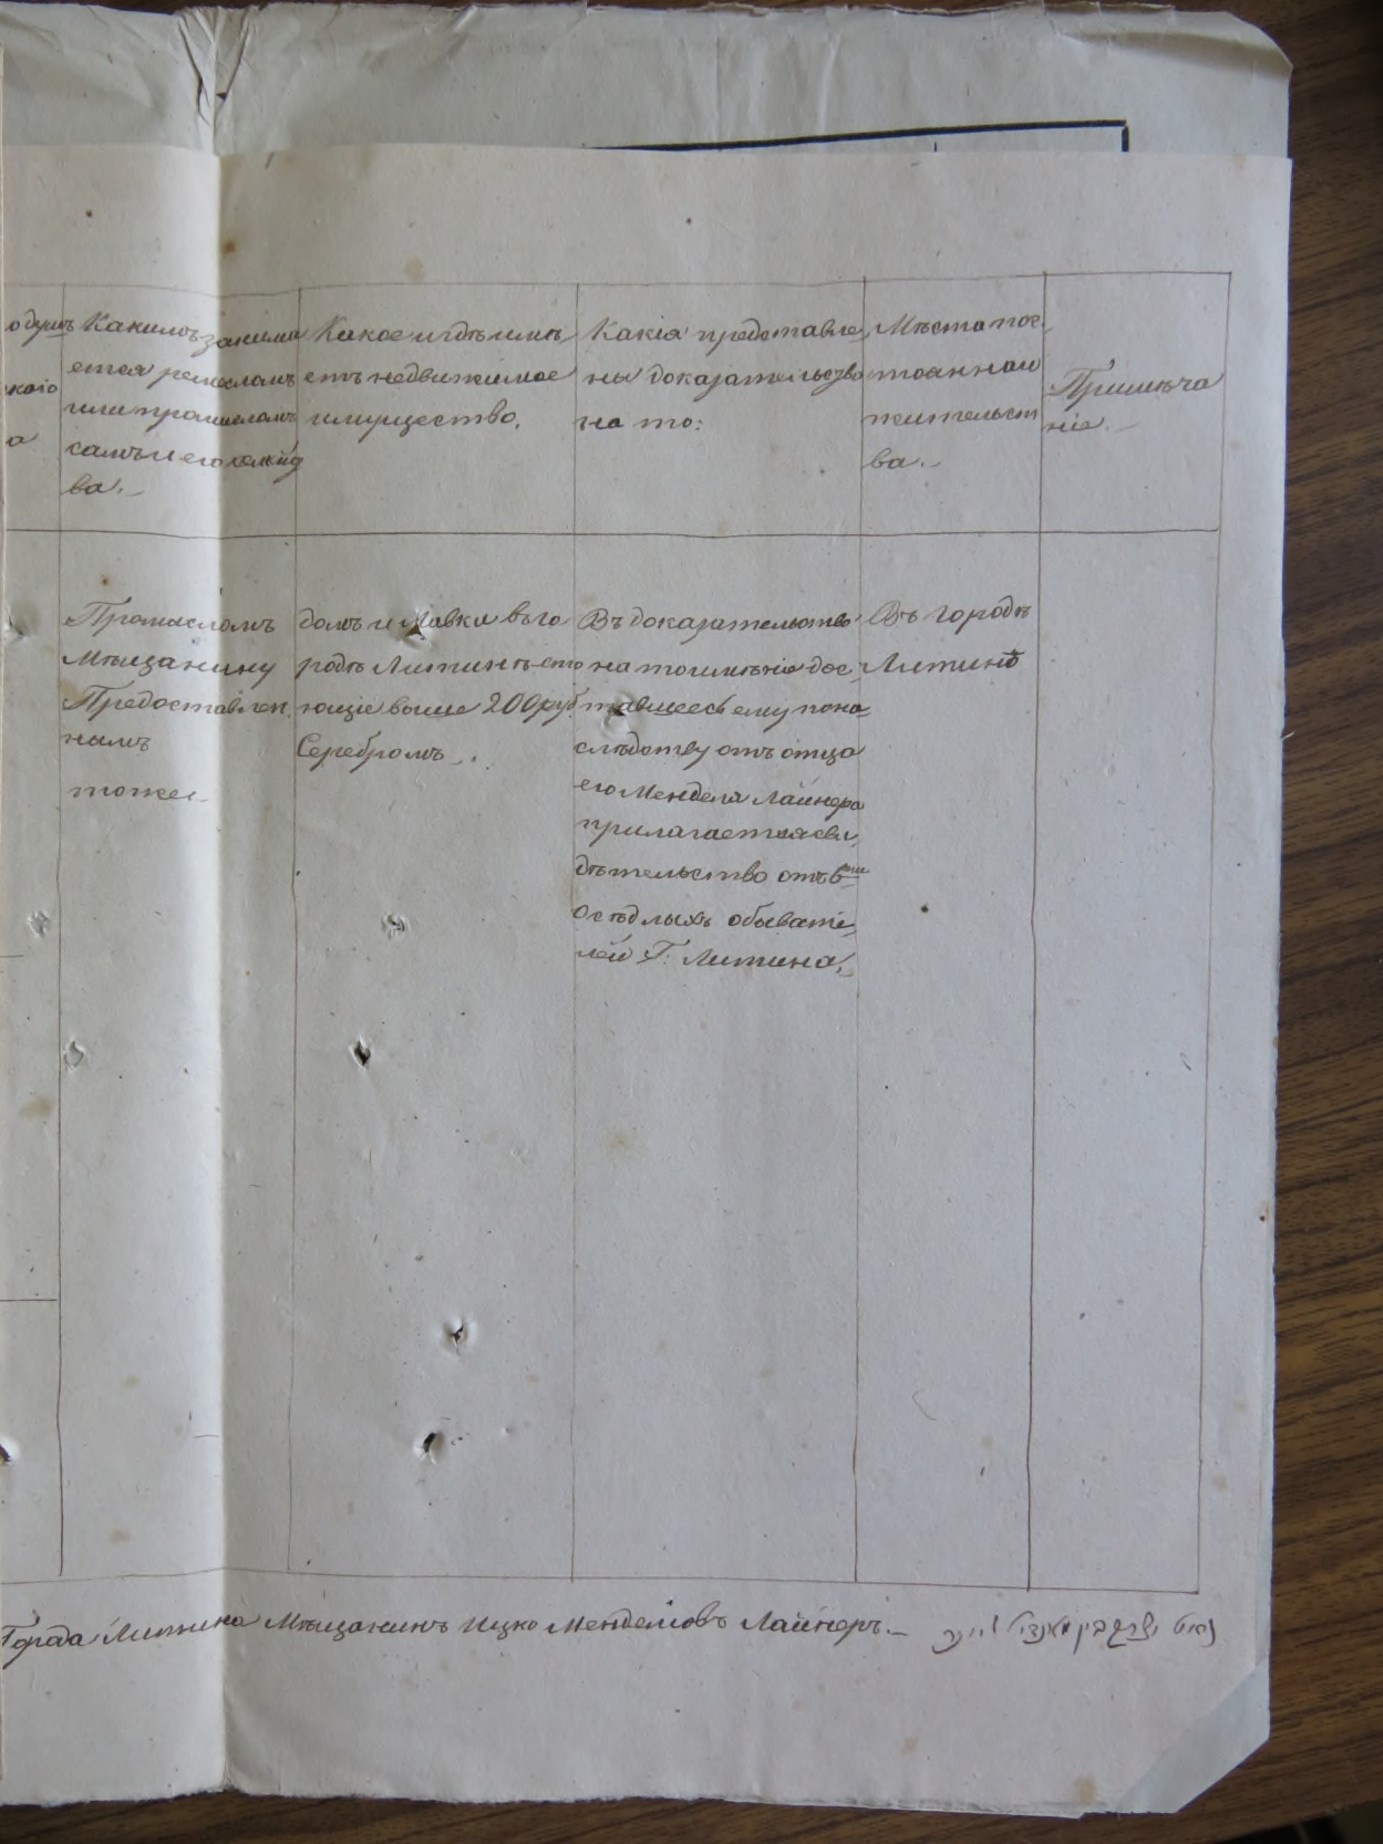 о душъ
каго
а
Какимъ занима
ется ремесломъ
или промысломъ
самъ и его семейс
ва.
Какое и гдѣ имѣ
етъ недвижимое
имущество.
Какія представле
ны доказательства
на то:
Мѣсто пос
тоаннаго
жительст
ва.
Примѣча
ніе.
Промысломъ
Мѣщанину
Предоставлен
нымъ
тоже
домъ и Лавки въ го
родѣ Литинѣ сто
ющіе выше 200 руб
Серебромъ.
Въ доказательство
на то имѣніе дос
тавшееся ему пона
слѣдству отъ отца
его Менделя Лайнера
прилагается сви
дѣтельство отъ 6ти
осѣдлыхъ обывате
лей Г: Литина.
Въ городѣ
Литинѣ
Города Литина Мѣщанинъ Ицко Менделювъ Лайнеръ. בין מענדיל לײנר